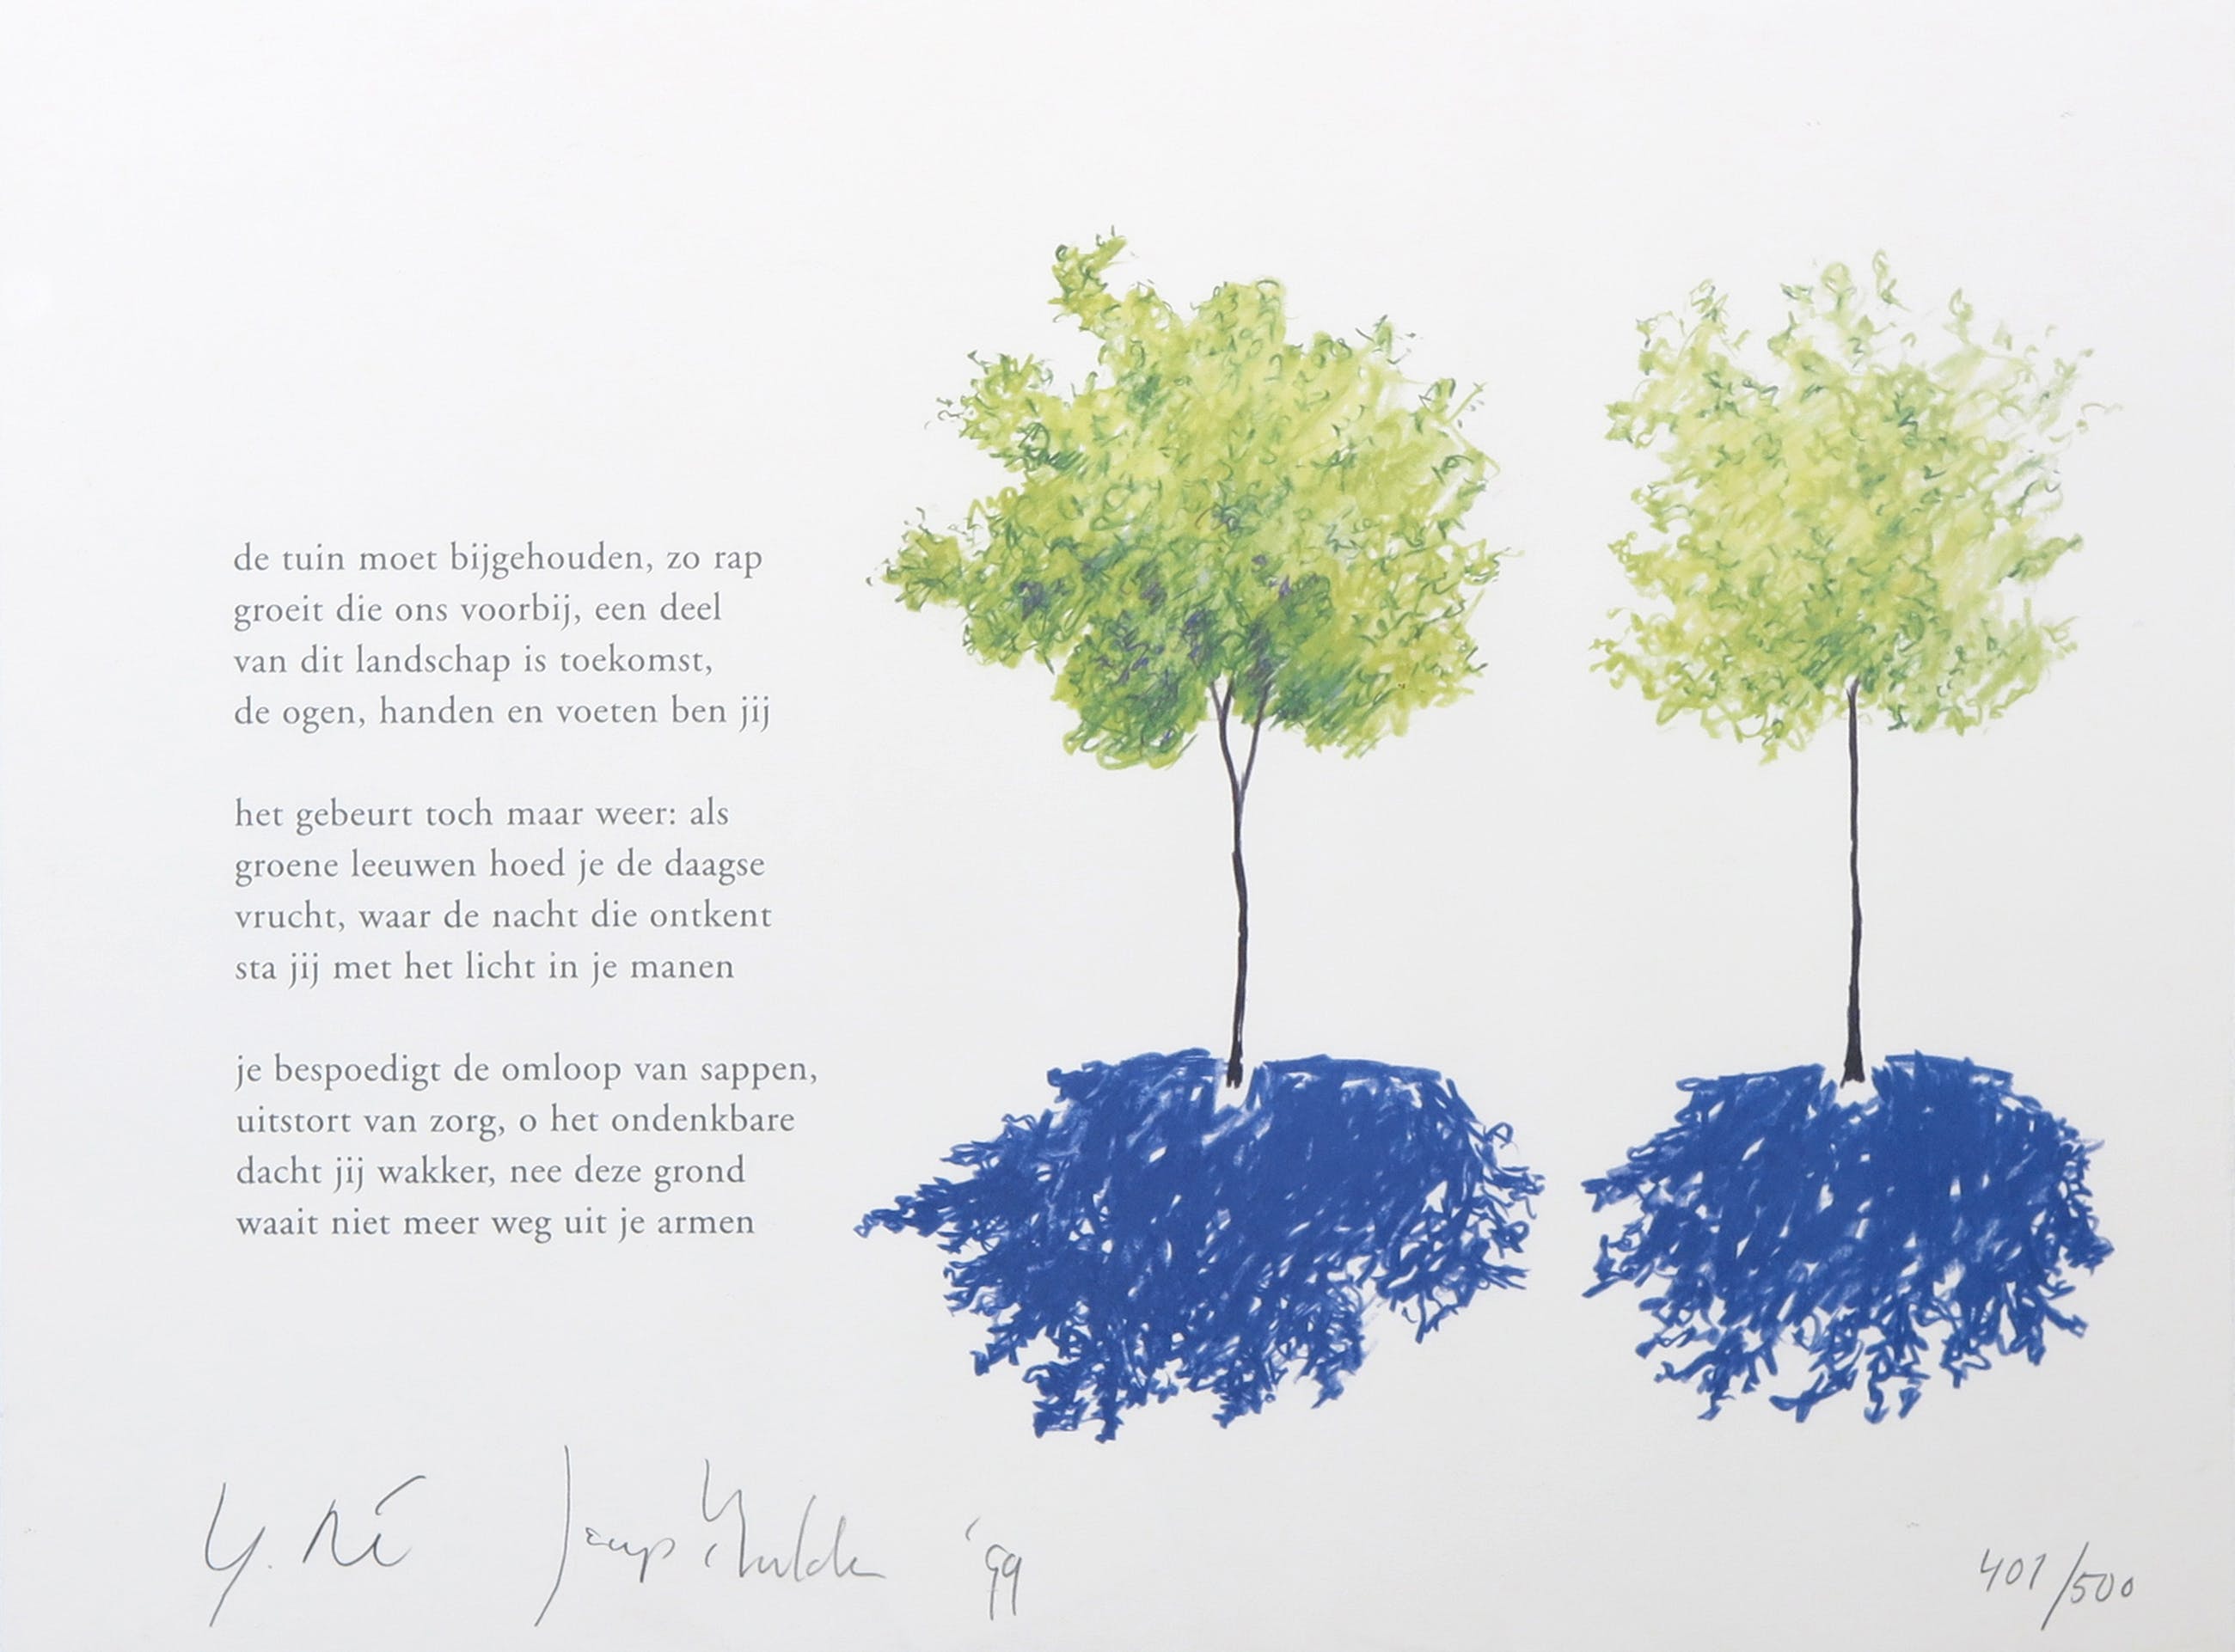 de tuin moet bijgehouden, zo rap
groeit die ons voorbij, een deel
van dit landschap is toekomst,
de ogen, handen en voeten ben jij

het gebeurt toch maar weer: als
groene leeuwen hoed je de daagse
vrucht, waar de nacht die ontkent
sta jij met het licht in je manen

je bespoedigt de omloop van sappen,
uitstort van zorg, o het ondenkbare
dacht jij wakker, nee deze grond
waait niet meer weg uit je armen

'99
401/500